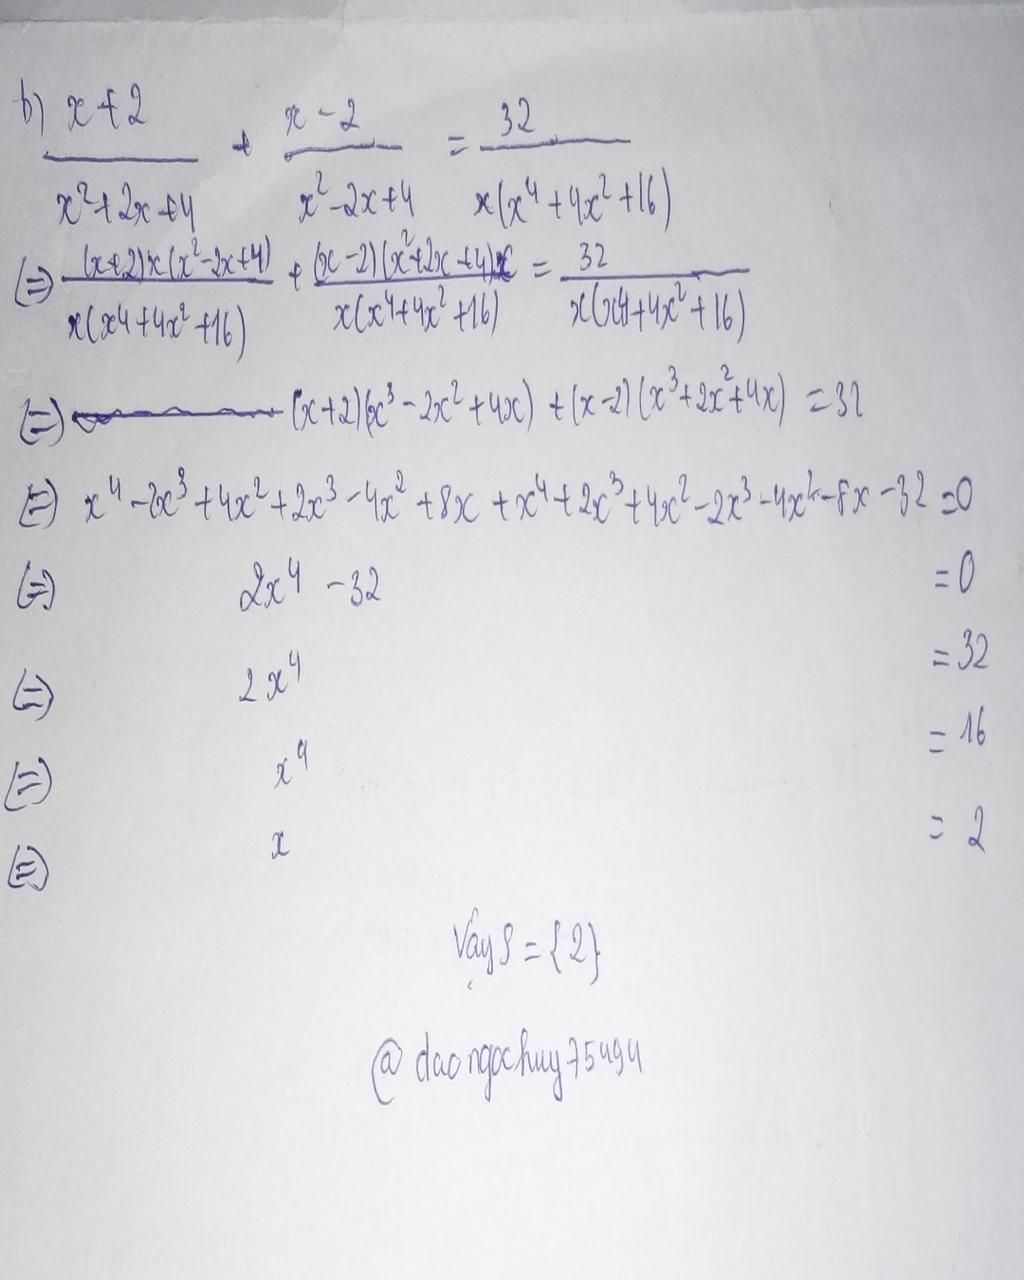 b) x+2 / x²+2x+4 + x-2 / x²-2x+4 = 32 / x(x⁴+4x²+16)
(=) (x+2)x(x²-2x+4) / x(x⁴+4x²+16) + (x-2)(x²+2x+4)x / x(x⁴+4x²+16) = 32 / x(x⁴+4x²+16)
(=) (x+2)(x³-2x²+4x) + (x-2)(x³+2x²+4x) = 32
(=) x⁴-2x³+4x²+2x³-4x²+8x+x⁴+2x³+4x²-2x³-4x²-8x-32=0
(=) 2x⁴-32 = 0
(=) 2x⁴ = 32
(=) x⁴ = 16
(=) x = 2
Vậy S = {2}
@daongochuy75494